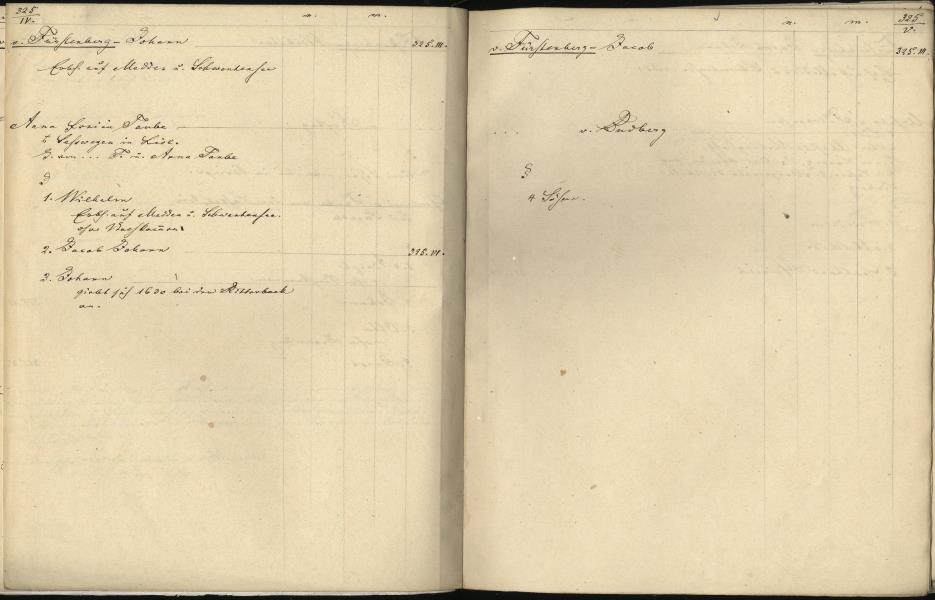 325
IV.
n. m.
v. Fürstenberg - Johann 325. III.
Erbh. auf Medden u. Schwenhensee
Anna Taube
in Livl.
T. u. Anna Taube
1. Wilhelm
Erbh. auf Medden u. Schwenhensee.
ohne Nachkommen
2. Jacob Johann 325. VI.
3. Johann
giebt sich 1630 bei der Ritterbank
an.
n. m.
325
V.
v. Fürstenberg - Jacob 325. III.
. . . v. Budberg
4 Söhne.